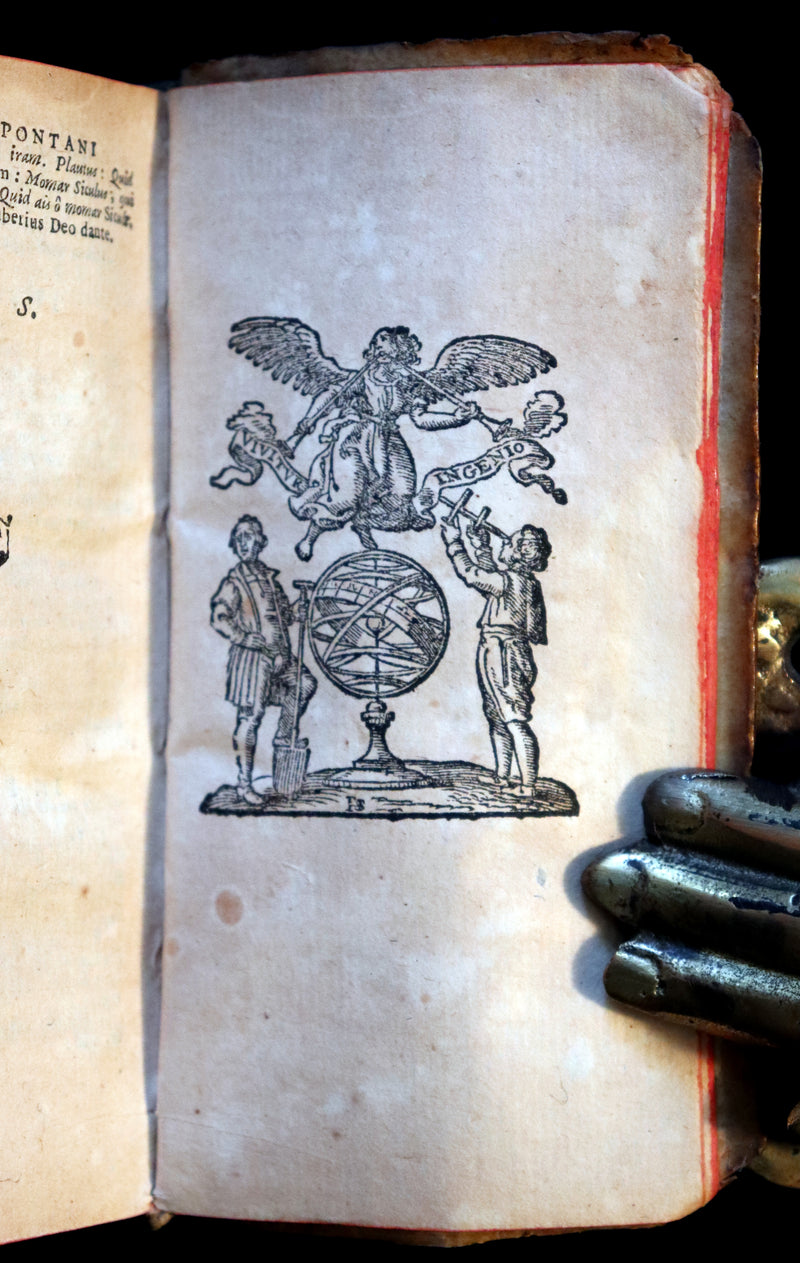 PONTANI
iram. Plautus: Quid
m: Momar Siculus; qui
Quid ais ô momar Sicule.
uberius Deo dante.
S.
VIVITUR
INGENIO
HS